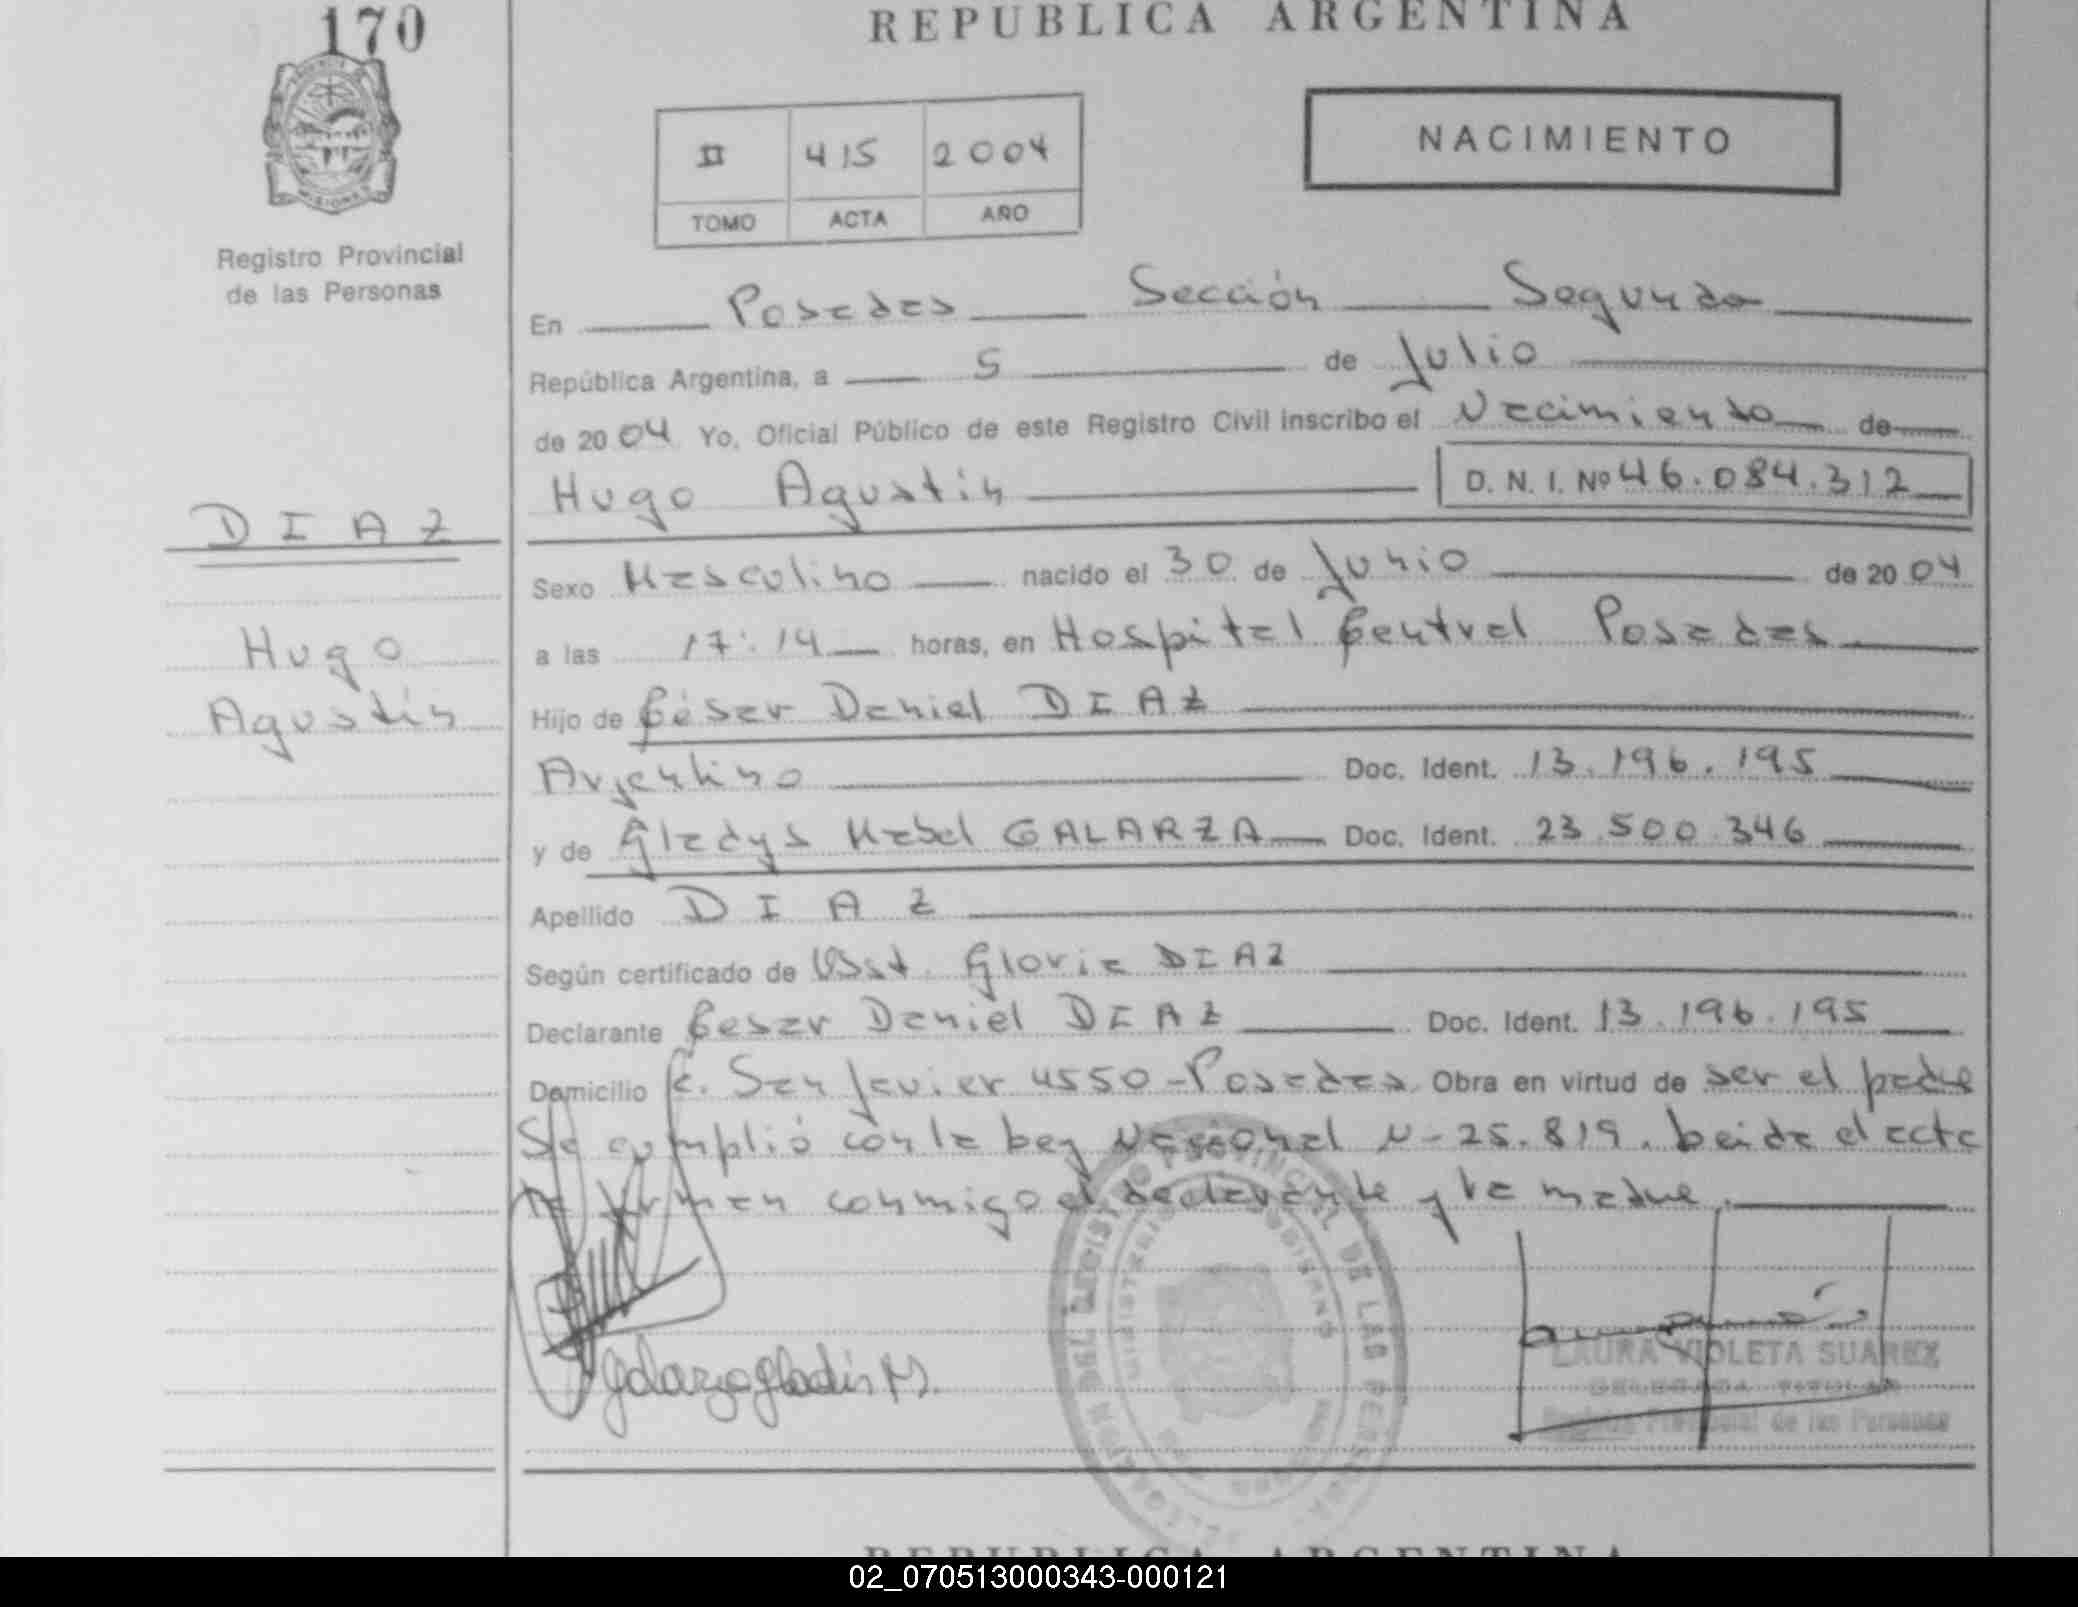 170
REPUBLICA ARGENTINA
NACIMIENTO
II 415 2004
TOMO ACTA AÑO
Registro Provincial
de las Personas
En Posadas Sección Segunda
República Argentina, a 5 de Julio
de 2004 Yo, Oficial Público de este Registro Civil inscribo el Nacimiento de
Hugo Agustín D. N. I. Nº 46.084.312
DIAZ
Sexo Masculino nacido el 30 de Junio de 2004
Hugo
Agustín
a las 17:14 horas, en Hospital Central Posadas
Hijo de César Daniel DIAZ
Argentino Doc. Ident. 13.196.195
y de Gladys Mabel GALARZA Doc. Ident. 23.500.346
Apellido DIAZ
Según certificado de Obst. Gloria DIAZ
Declarante Cesar Daniel DIAZ Doc. Ident. 13.196.195
Domicilio C. San Javier 4550 - Posadas Obra en virtud de ser el padre
Se cumplió con la Ley Nacional N - 25.819. Leida el acta
la firman conmigo el declarante y la madre.
REGISTRO PROVINCIAL DE LAS PERSONAS
MINISTERIO GOBIERNO
Galarza Gladis M.
LAURA VIOLETA SUAREZ
DELEGADA TITULAR
Registro Provincial de las Personas
REPUBLICA ARGENTINA
02_070513000343-000121